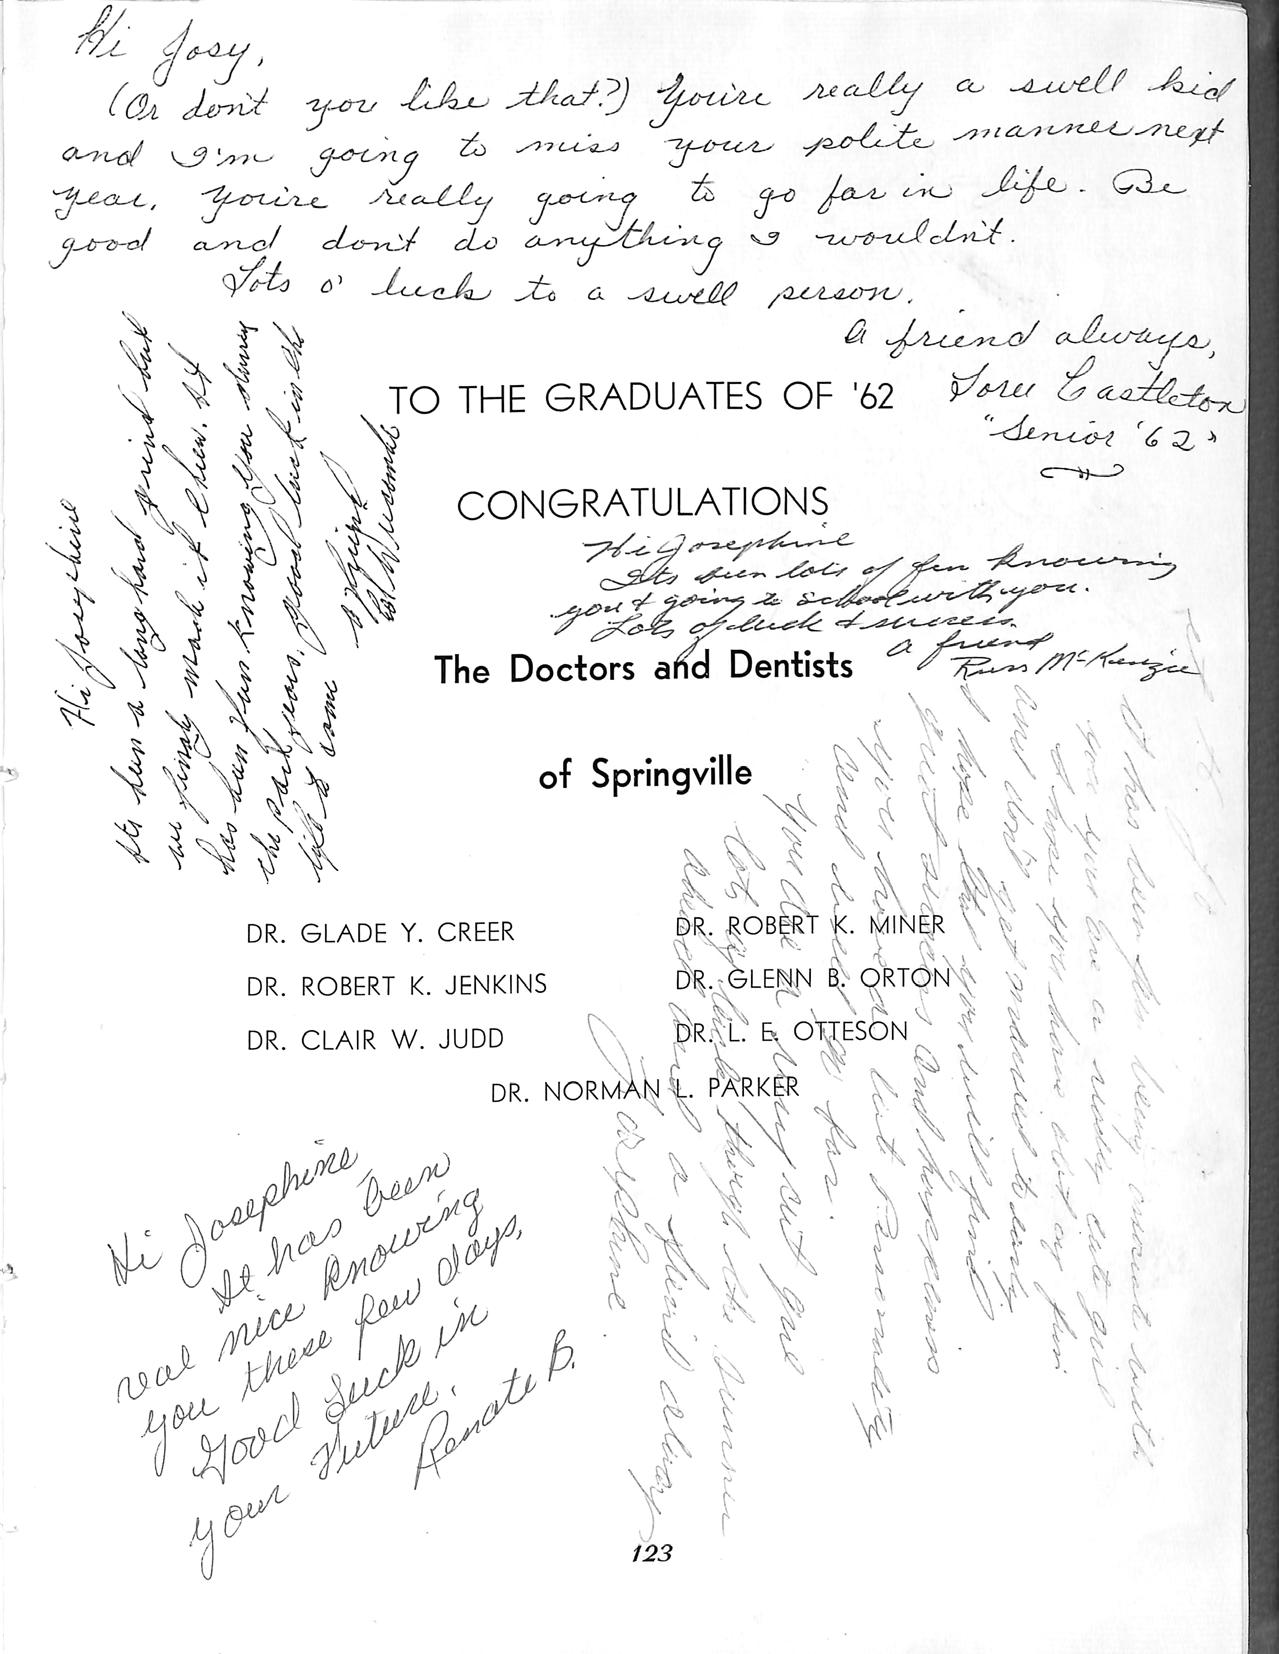 Hi Josy,
(Or don't you like that?) You're really a swell kid
and I'm going to miss your polite manner next
year. You're really going to go far in life. Be
good and don't do anything I wouldn't.
Lots o' luck to a swell person.
A friend always,
Castleton
"Senior '62"
TO THE GRADUATES OF '62
CONGRATULATIONS
Hi Josephine
Its been lots of fun knowing
you & going to school with you.
Lots of luck & success.
A friend
Russ McKenzie
The Doctors and Dentists
of Springville
DR. GLADE Y. CREER
DR. ROBERT K. MINER
DR. ROBERT K. JENKINS
DR. GLENN B. ORTON
DR. CLAIR W. JUDD
DR. L. E. OTTESON
DR. NORMAN L. PARKER
Hi Josephine
Its been a long hard grind but
we finaly made it I hew. It
has been fun knowing you during
the past years. Good luck in the
life to come
a friend
it has been fun being with
you you are a cute girl
I hope you have a lot of fun
and don't get married to
I hope that you will find
great success and happiness
you have a lot
and will go far.
You are a very cut girl
lots of luck through the summer
and a friend always
Josephine.
Hi Josephine
It has been
real nice knowing
you these few days.
Good Luck in
your Future.
Renate B.
123